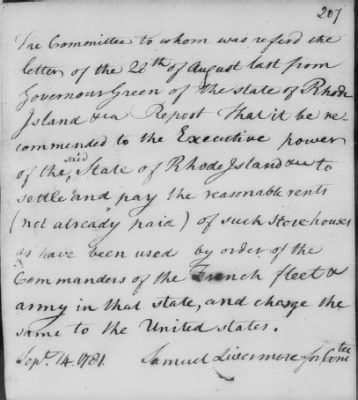 207
The Committee to whom was referd the
letter of the 22th of August last from
Governour Green of the state of Rhode
Island &ca Report That it be re
commended to the Executive power
of the said State of Rhode Island &ca to
settle and pay the reasonable rents
(not already paid) of such Storehouses
as have been used by order of the
Commanders of the French fleet &
army in that state, and charge the
same to the United states.
Sepr. 14. 1781. Samuel Livermore for Comtee